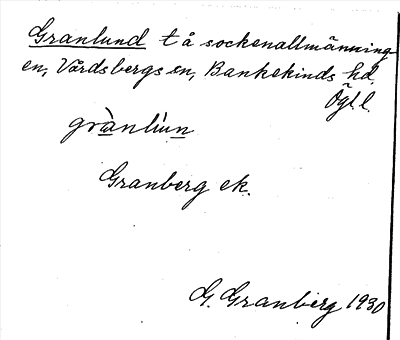 Granlund t å sockenallmänning-
en, Vårdsbergs sn, Bankekinds hd.
Ögl. l.
grànlùn
Granberg ek.
G. Granberg 1930